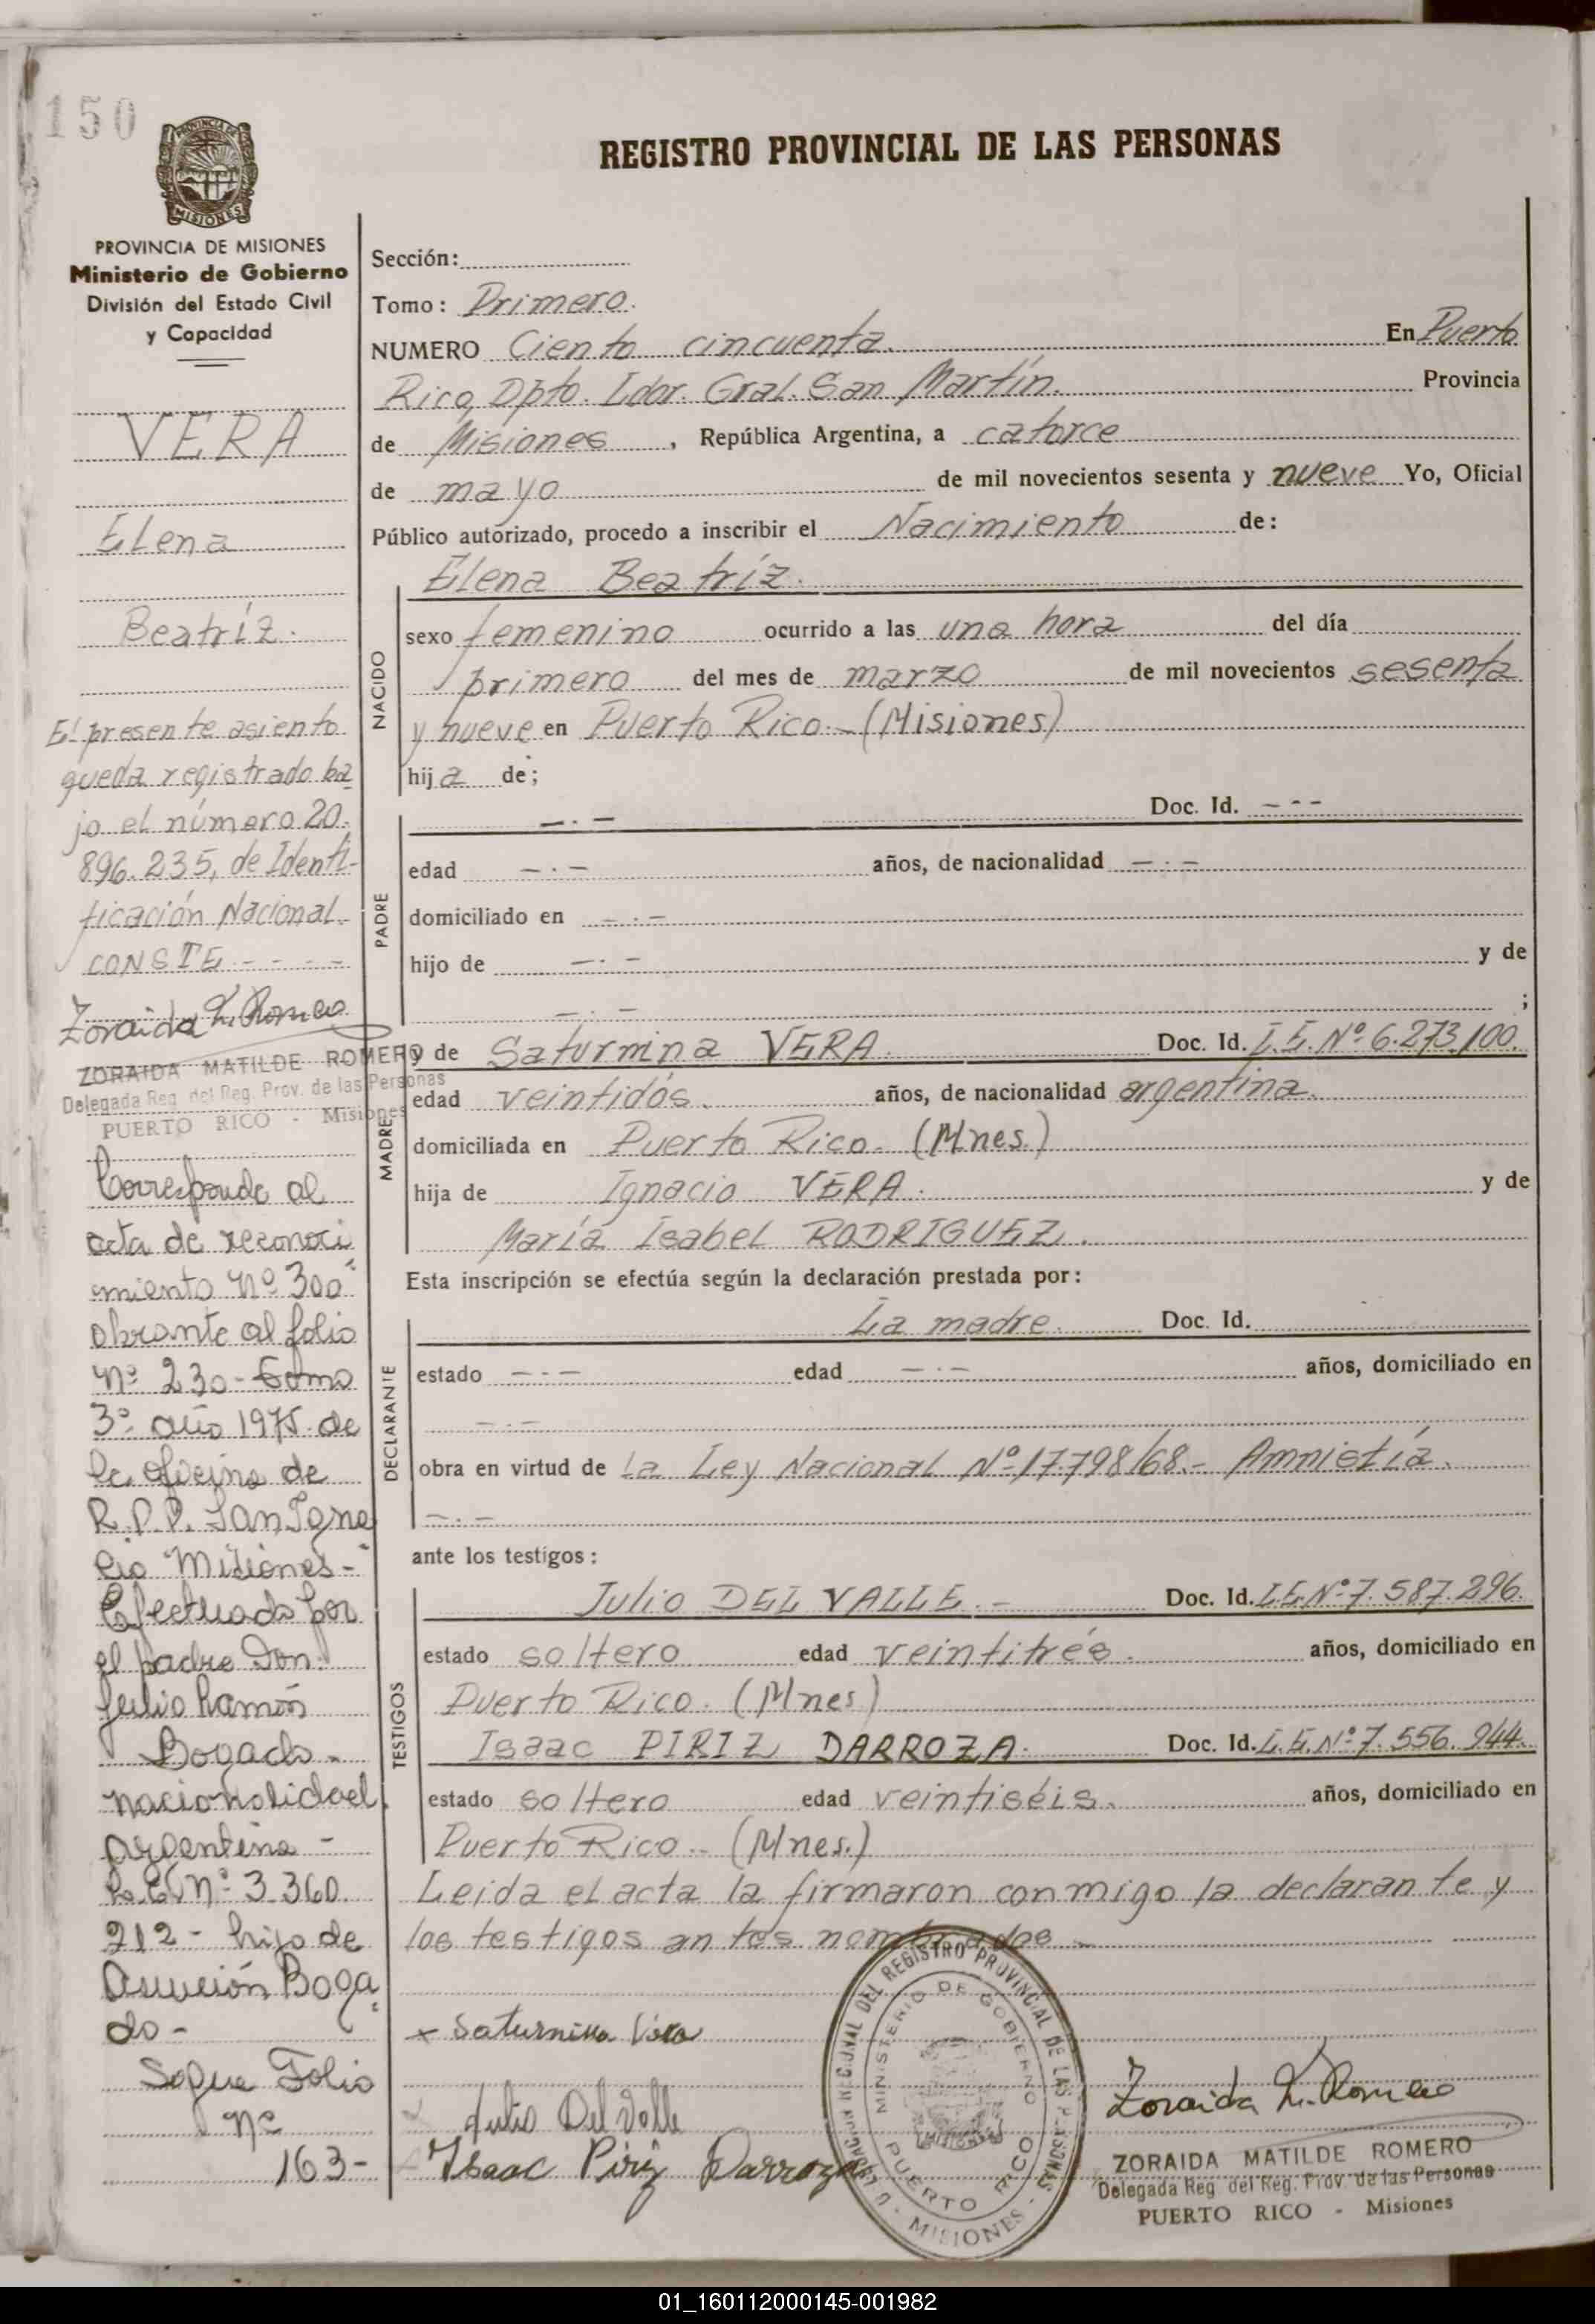 150
PROVINCIA DE
MISIONES
PROVINCIA DE MISIONES
Ministerio de Gobierno
División del Estado Civil
y Capacidad
VERA
Elena
Beatríz.
El presente asiento
queda registrado ba
jo el número 20.
896.235, de Identi-
ficación Nacional.-
CONSTE - - - -
Zoraida M. Romero
ZORAIDA MATILDE ROMERO
Delegada Reg. del Reg. Prov. de las Personas
PUERTO RICO - Misiones
Corresponde al
acta de reconoci
miento Nº 300
obrante al folio
Nº 230 - Tomo
3º año 1975 de
la oficina de
R.P.P. San Igna
cio Misiones -
Efectuado por
el padre Don:
Julio Ramón
Bogado -
nacionalidad
argentina -
L.E. Nº 3.360
212 - hijo de
Asunción Boga
do -
Sigue Folio
Nº
163-
REGISTRO PROVINCIAL DE LAS PERSONAS
Sección:
Tomo: Primero.
NUMERO Ciento cincuenta. En Puerto
Rico, Dpto. Ldor. Gral. San Martín. Provincia
de Misiones, República Argentina, a catorce
de mayo de mil novecientos sesenta y nueve Yo, Oficial
Público autorizado, procedo a inscribir el Nacimiento de:
Elena Beatríz.
NACIDO
sexo femenino ocurrido a las una hora del día
primero del mes de marzo de mil novecientos sesenta
y nueve en Puerto Rico.- (Misiones)
hija de;
PADRE
— . — Doc. Id. - - -
edad — . — años, de nacionalidad — . —
domiciliado en — . —
hijo de — . — y de
— . — ;
MADRE
y de Saturnina VERA. Doc. Id. L.E. Nº 6.273.100.
edad veintidós. años, de nacionalidad argentina.
domiciliada en Puerto Rico. (Mnes.)
hija de Ignacio VERA. y de
María Isabel RODRIGUEZ.
Esta inscripción se efectúa según la declaración prestada por:
DECLARANTE
La madre. Doc. Id.
estado — . — edad — . — años, domiciliado en
— . —
obra en virtud de la Ley Nacional Nº 17798/68.- Amnistía.
— . —
ante los testigos:
TESTIGOS
Julio DEL VALLE.- Doc. Id. L.E. Nº 7.587.296.
estado soltero edad veintitrés. años, domiciliado en
Puerto Rico. (Mnes)
Isaac PIRIZ DARROZA. Doc. Id. L.E. Nº 7.556.944.
estado soltero edad veintiséis. años, domiciliado en
Puerto Rico.- (Mnes.)
Leida el acta la firmaron conmigo la declarante y
los testigos antes nombrados -
x Saturnina Vera
Julio Del Valle
Isaac Piriz Darroza
REGIONAL DEL REGISTRO PROVINCIAL DE LAS PERSONAS
MINISTERIO DE GOBIERNO
MISIONES
PUERTO RICO
- MISIONES -
Zoraida M. Romero
ZORAIDA MATILDE ROMERO
Delegada Reg. del Reg. Prov. de las Personas
PUERTO RICO - Misiones
01_160112000145-001982